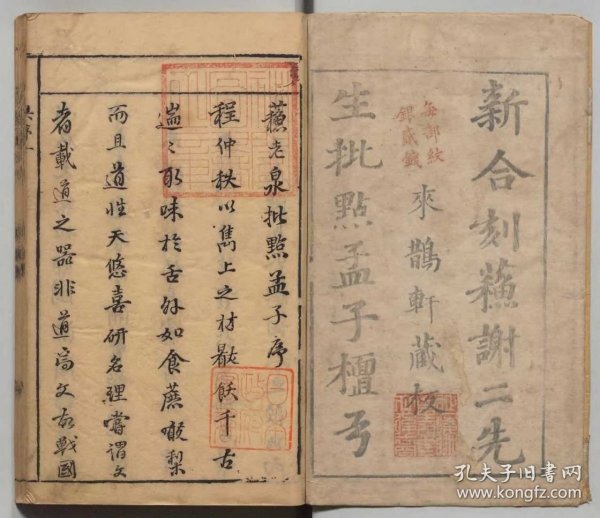 新合刻蘓謝二先
來鵲軒藏板
每部紋
銀貳錢
生批點孟子檀弓
蘓老泉批點孟子序
程仲秩以雋上之材歠飫千古
遄之取味於舌外如食蔗噉梨
而且道性天悠嘉研名理嘗謂文
者載道之器非道高文故戰國
孔夫子旧书网
www.kongfz.com